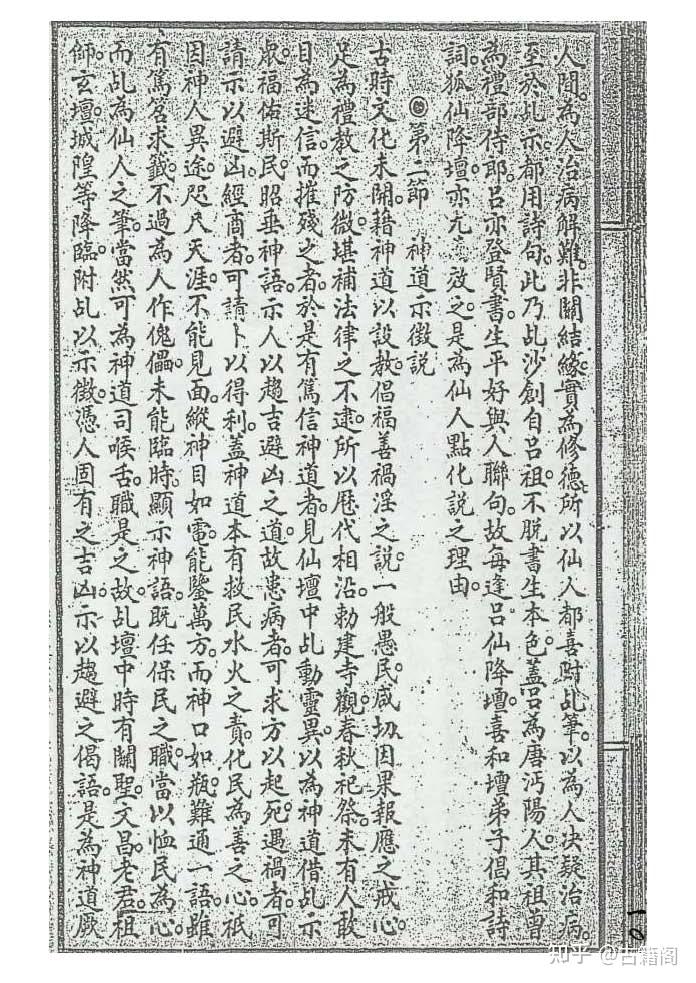 人間。為人治病解難。非關結緣。實為修德。所以仙人都喜附乩筆。以為人决疑治病。
至於乩示。都用詩句。此乃乩沙創自呂祖。不脫書生本色。蓋呂為唐沔陽人。其祖曾
為禮部侍郎。呂亦登賢書。生平好與人聯句。故每逢呂仙降壇。喜和壇弟子倡和詩
詞。狐仙降壇。亦尤效之。是為仙人點化說之理由。
◎第二節 神道示徵說
古時文化未開。藉神道以設教。倡福善禍淫之說。一般愚民。咸切因果報應之戒心。
足為禮教之防微。堪補法律之不逮。所以歷代相沿。勅建寺觀。春秋祀祭。未有人敢
目為迷信。而摧殘之者。於是有篤信神道者。見仙壇中乩動靈異。以為神道借乩示
眾。福佑斯民。昭垂神語。示人以趨吉避凶之道。故患病者。可求方以起死。遇禍者。可
請示以避凶。經商者。可請卜以得利。蓋神道本有救民水火之責。化民為善之心。祇
因神人異途。咫尺天涯。不能見面。縱神目如電。能鑒萬方。而神口如瓶。難通一語。雖
有篤筶求籤。不過為人作傀儡。未能臨時。顯示神語。既任保民之職。當以恤民為心。
而乩為仙人之筆。當然可為神道司喉舌。職是之故。乩壇中時有關聖。文昌。老君。祖
師。玄壇。城隍等降臨。附乩以示徵。憑人固有之吉凶。示以趨避之偈語。是為神道厥
10
知乎 @古籍阁